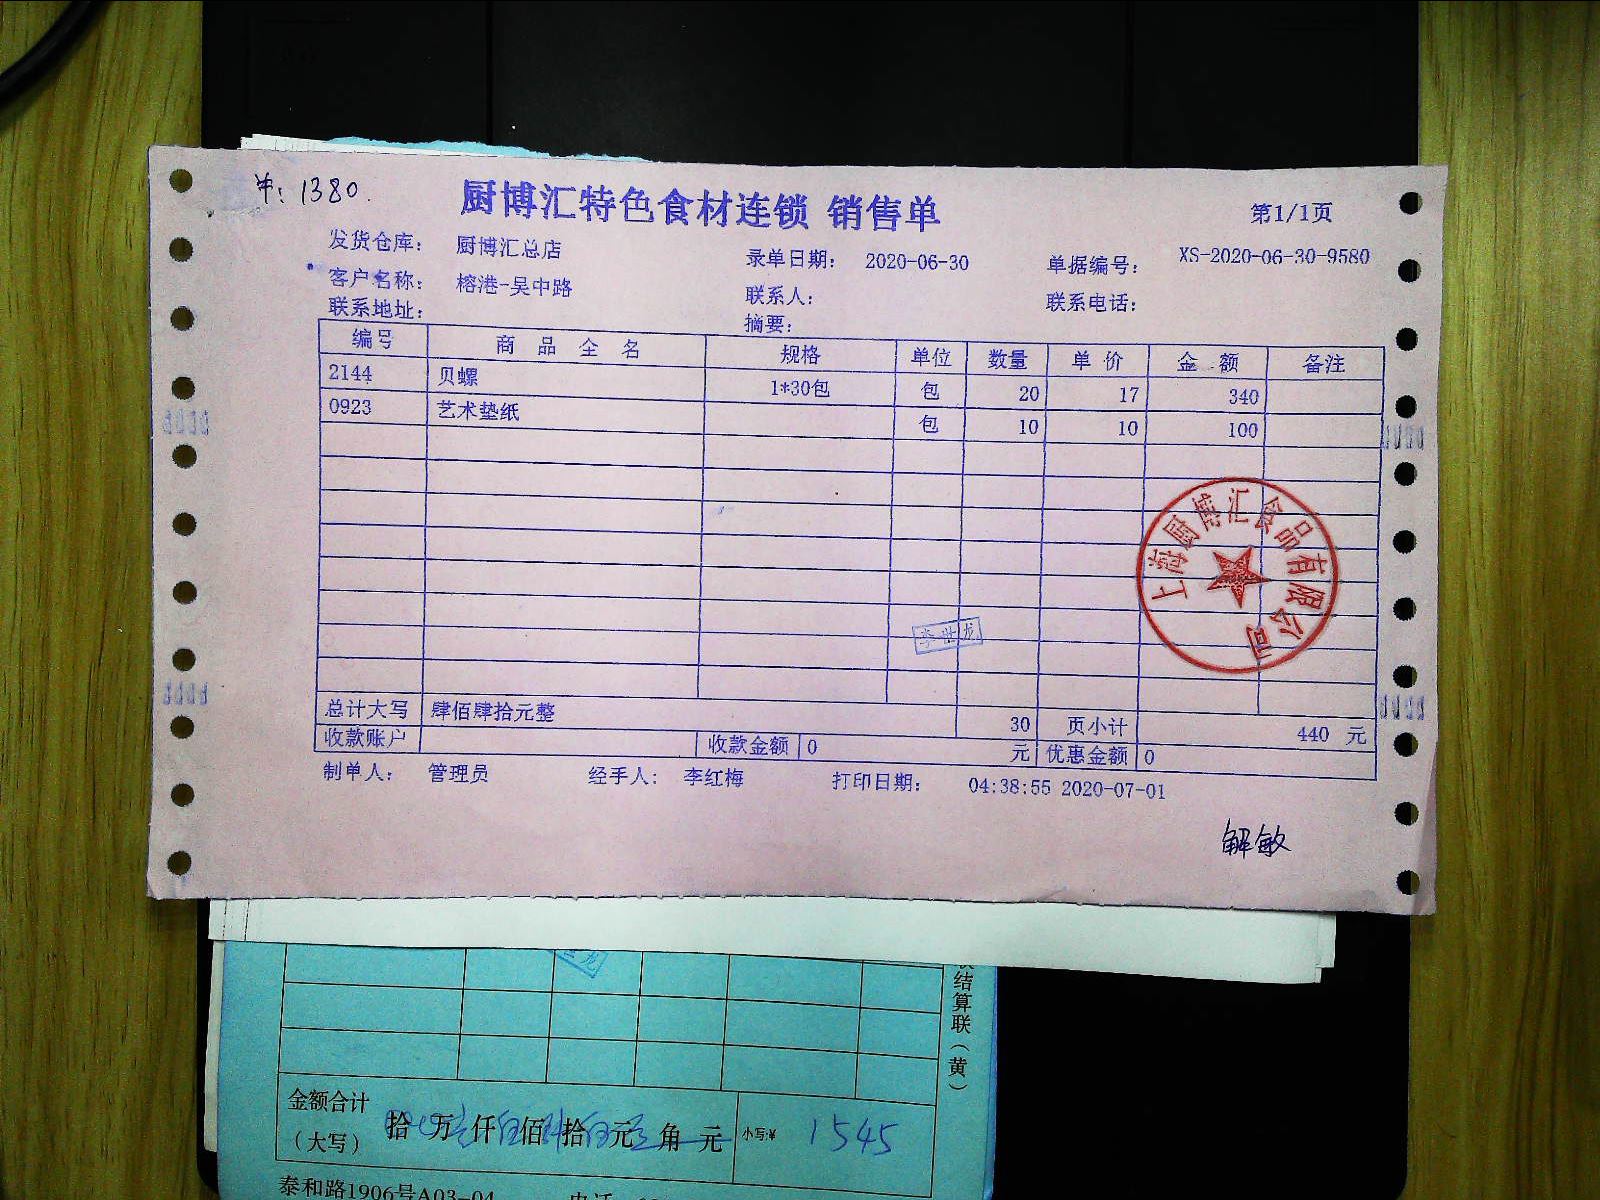 ¥: 1380.
厨博汇特色食材连锁 销售单
第1/1页
发货仓库： 厨博汇总店 录单日期： 2020-06-30 单据编号： XS-2020-06-30-9580
客户名称： 榕港-吴中路 联系人： 联系电话：
联系地址： 摘要：
编号 商品全名 规格 单位 数量 单价 金额 备注
2144 贝螺 1*30包 包 20 17 340
0923 艺术垫纸 包 10 10 100
上海厨博汇食品有限公司
李世龙
总计大写 肆佰肆拾元整 30 页小计 440 元
收款账户 收款金额 0 元 优惠金额 0
制单人： 管理员 经手人： 李红梅 打印日期： 04:38:55 2020-07-01
解敏
结算联（黄）
金额合计
（大写） 拾 万 仟 佰 拾 元 角 元 小写:¥ 1545
泰和路1906号A03-04